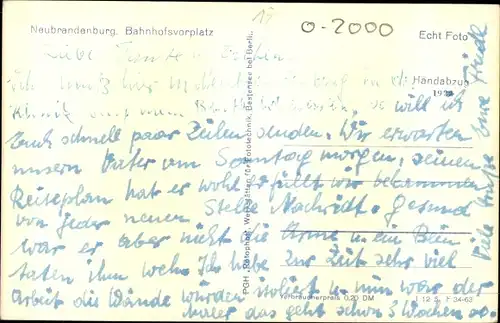 17
O-2000
Neubrandenburg. Bahnhofsvorplatz
Echt Foto
Handabzug
Liebe Tante u.
ich muß hier
will ich
Euch schnell paar Zeilen senden. Wir erwarten
unsern Vater am Sonntag morgen, seinen
Reiseplan hat er wohl erfüllt wir bekommen
von jeder neuen Stelle Nachricht. Gesund
war er aber nicht die Arme u ein Bein
taten ihm weh. Ich habe zur Zeit sehr viel
Arbeit die Wände würden isoliert u nun war der
Maler das geht schon 3 Wochen so.
Viele Grüße Eure Friedel
PGH „Fotophot“, Werkstätten für Fototechnik, Bestensee bei Berlin.
Verbraucherpreis 0,20 DM